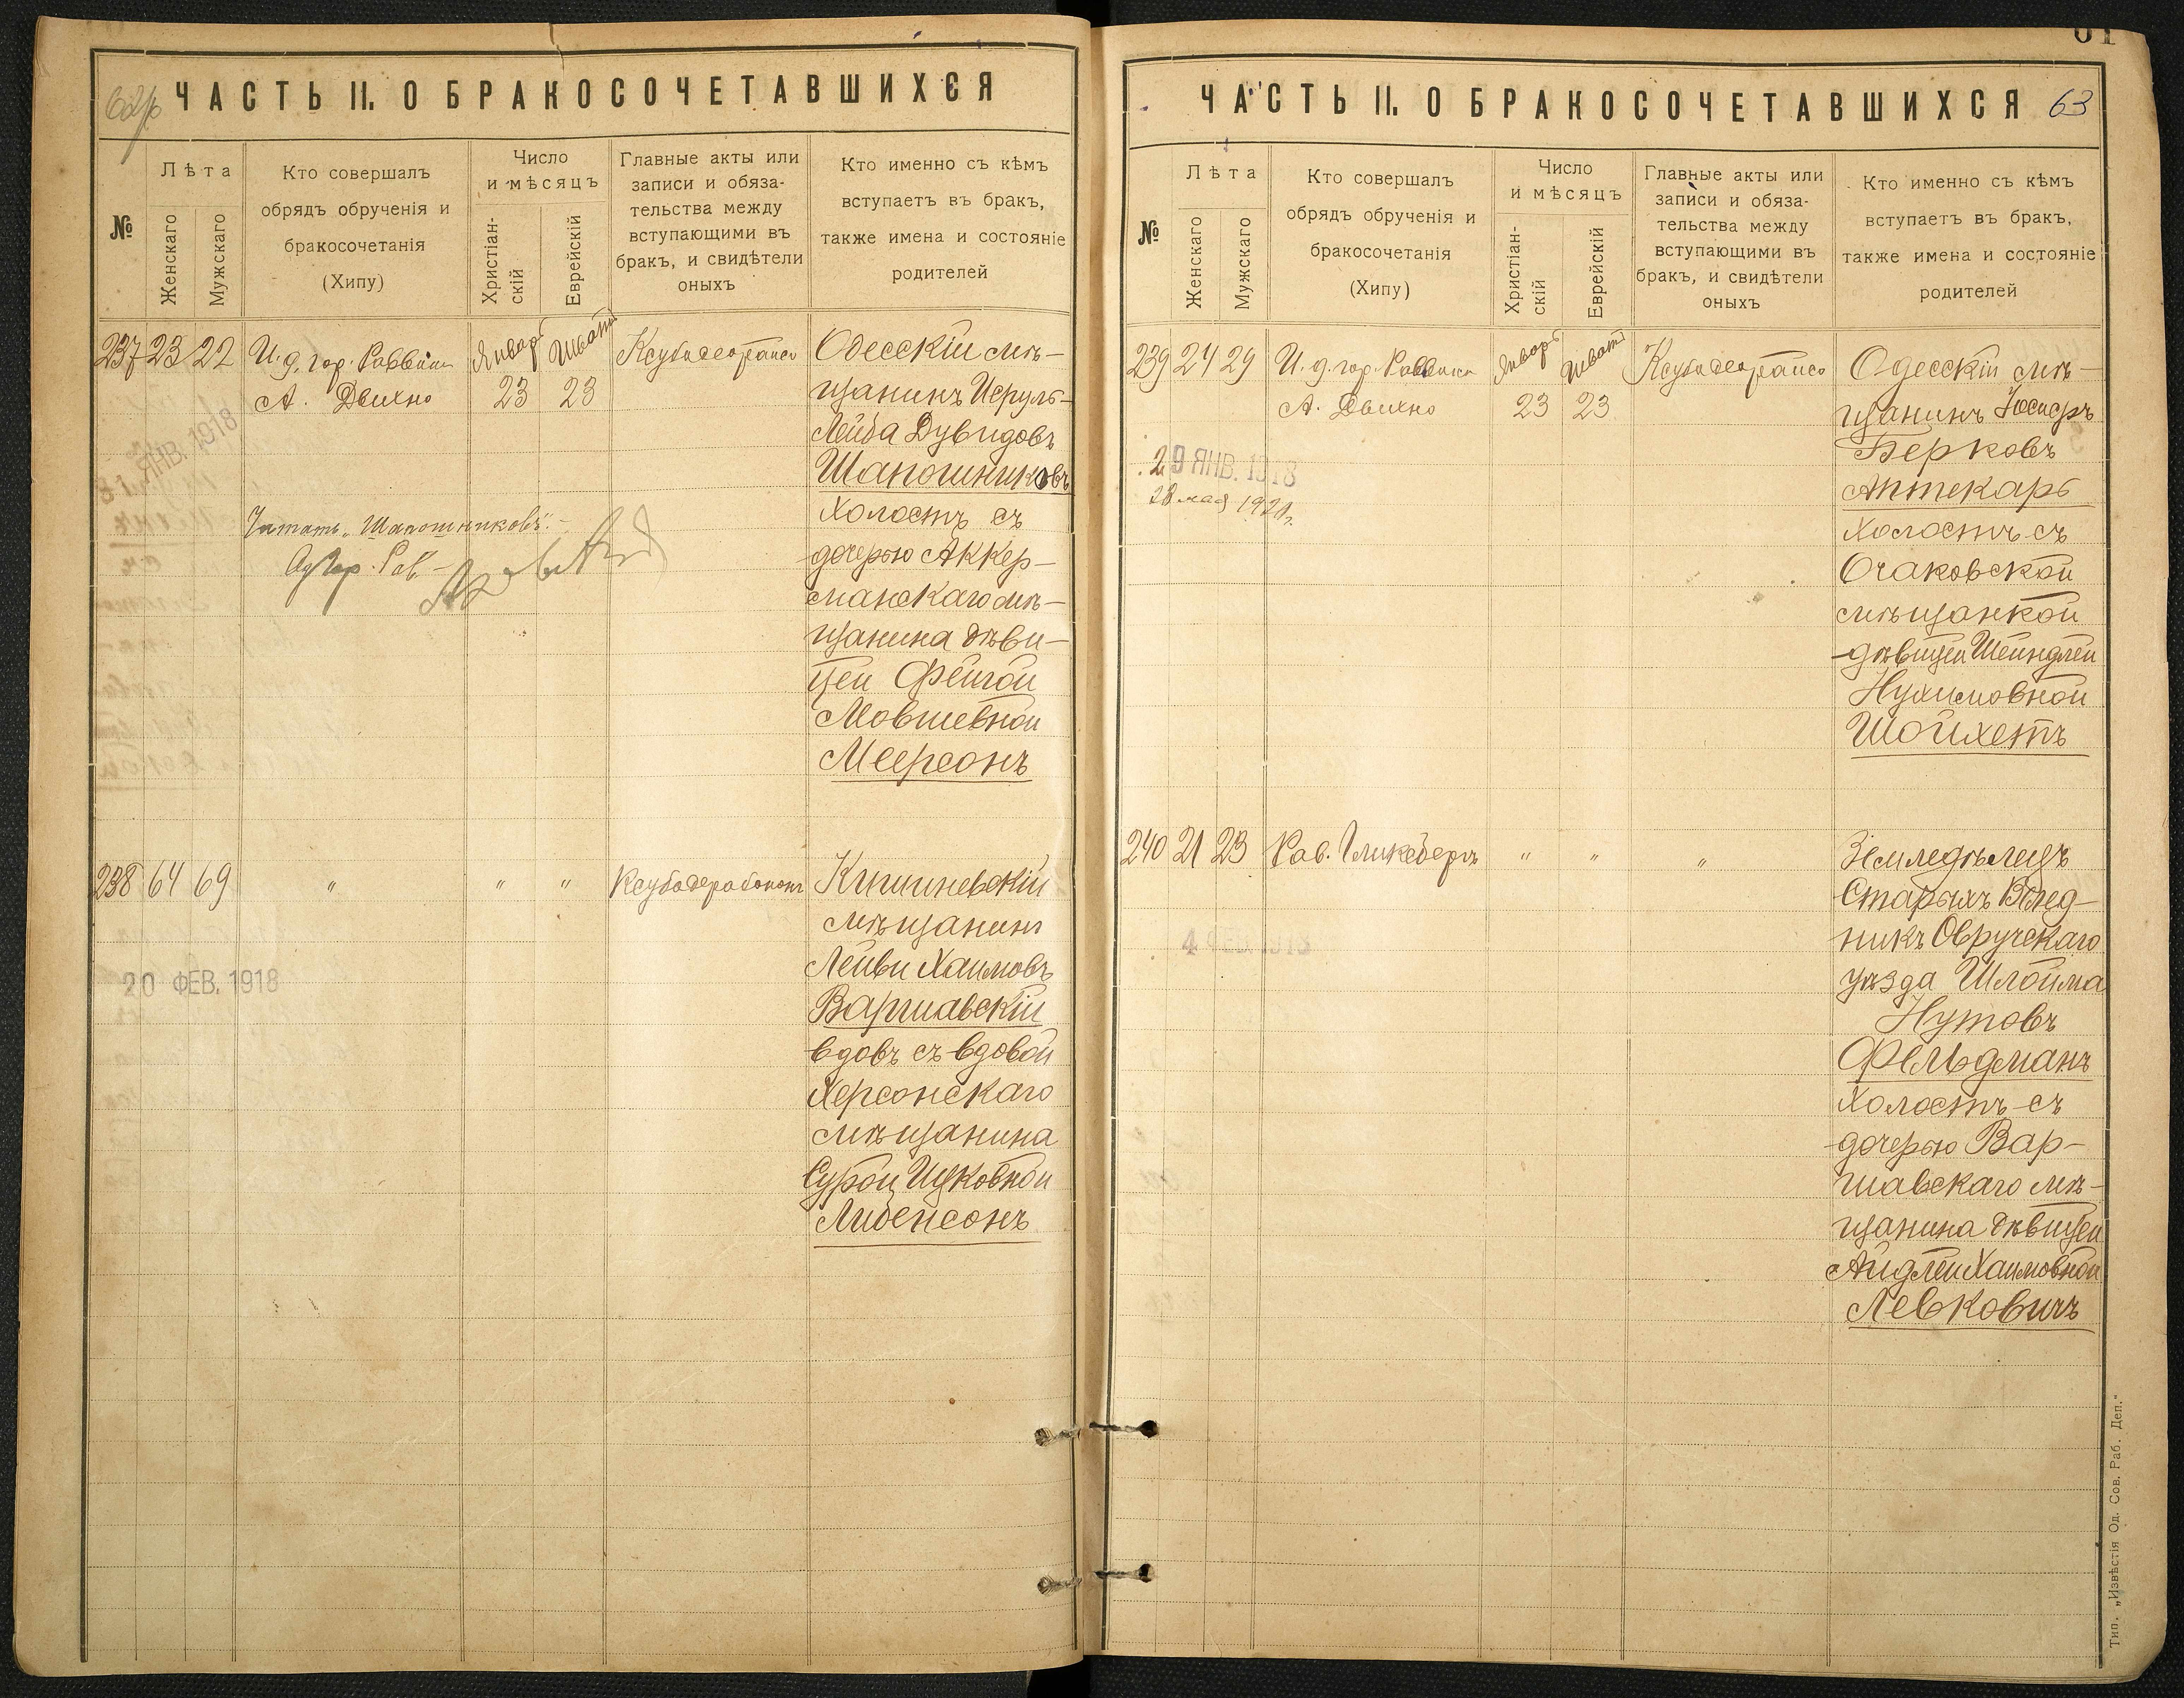 62/об
ЧАСТЬ II. О БРАКОСОЧЕТАВШИХСЯ
№
Лѣта
Женскаго
Мужскаго
Кто совершалъ
обрядъ обрученія и
бракосочетанія
(Хипу)
Число
и мѣсяцъ
Христіан-
скій
Еврейскій
Главные акты или
записи и обяза-
тельства между
вступающими въ
бракъ, и свидѣтели
оныхъ
Кто именно съ кѣмъ
вступаетъ въ бракъ,
также имена и состояніе
родителей
237 23 22
И. д. гор. Раввина
А. Двихно
Январь
23
Шватъ
23
Одесскій мѣ-
щанинъ Исруль-
Лейба Дувидовъ
Шапошниковъ
холостъ съ
дочерью Аккер-
манскаго мѣ-
щанина дѣви-
цей Фейгой
Мовшевной
Меерсонъ
ЯНВ. 1918
Читать „Шапошниковъ“.-
Гор. Рав.
238 64 69
"
" "
Ксубадерабононъ
Кишиневскій
мѣщанинъ
Лейви Хаимовъ
Варшавскій
вдовъ съ вдовой
Херсонскаго
мѣщанина
Сурой Ицковной
Либенсонъ
20 ФЕВ. 1918
ЧАСТЬ II. О БРАКОСОЧЕТАВШИХСЯ
63
№
Лѣта
Женскаго
Мужскаго
Кто совершалъ
обрядъ обрученія и
бракосочетанія
(Хипу)
Число
и мѣсяцъ
Христіан-
скій
Еврейскій
Главные акты или
записи и обяза-
тельства между
вступающими въ
бракъ, и свидѣтели
оныхъ
Кто именно съ кѣмъ
вступаетъ въ бракъ,
также имена и состояніе
родителей
239 24 29
И. д. гор. Раввина
А. Двихно
Январь
23
Шватъ
23
Одесскій мѣ-
щанинъ Іосифъ
Берковъ
Аптекарь
холостъ съ
Очаковской
мѣщанкой
дѣвицей Шейндлей
Нухимовной
Шойхетъ
29 ЯНВ. 1918
28 мая 1921г.
240 21 23
Рав. Гликсбергъ
" "
"
Земледѣлецъ
Старыхъ Велед-
никъ Овручскаго
уѣзда Шлойма
Нутовъ
Фельдманъ
холостъ съ
дочерью Вар-
шавскаго мѣ-
щанина дѣвицей
Айдлей Хаимовной
Левковичъ
4 ФЕВ. 1918
Тип. „Извѣстія Од. Сов. Раб. Деп.“